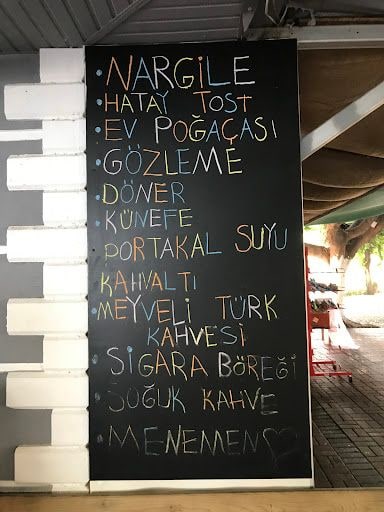 • NARGİLE
• HATAY TOST
• EV POĞAÇASI
• GÖZLEME
• DÖNER
• KÜNEFE
PORTAKAL SUYU
KAHVALTI
• MEYVELİ TÜRK
KAHVESİ
• SİGARA BÖREĞİ
• SOĞUK KAHVE
• MENEMEN ♡